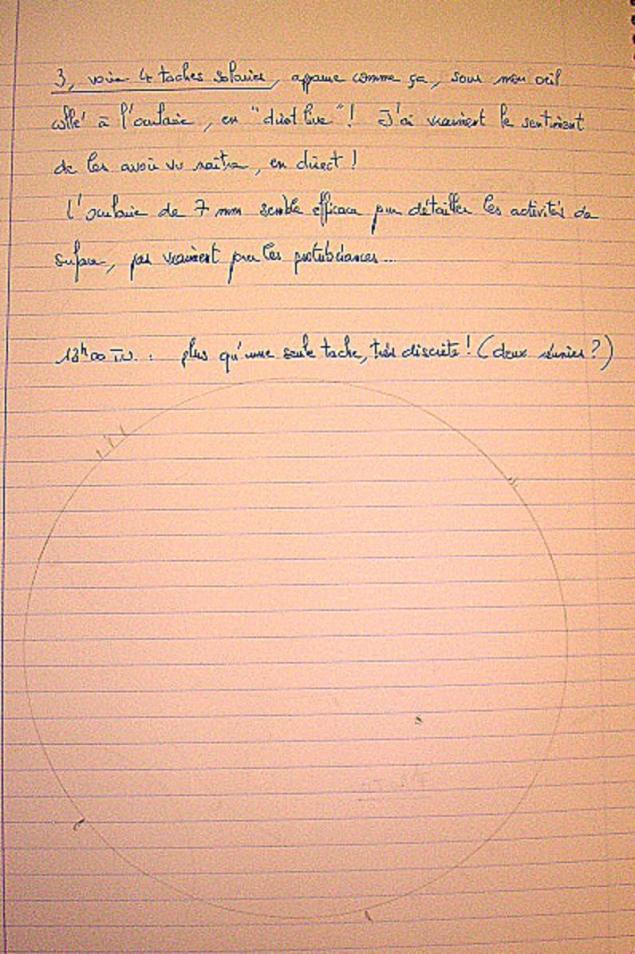 3, voire 4 taches solaires, apparue comme ça, sous mon oeil
collé à l'oculaire, en "direct live"! J'ai vraiment le sentiment
de les avoir vu naître, en direct!
L'oculaire de 7 mm semble efficace pour détailler les activités de
surface, pas vraiment pour les protubérances...
13h00 TU : plus qu'une seule tache, très discrète! (deux réunies?)